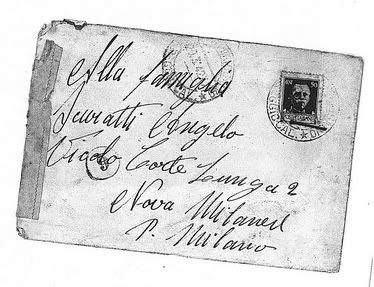 Alla famiglia
Scuratti Angelo
Vicolo Corte Lunga 2
Nova Milanese
P. Milano
50